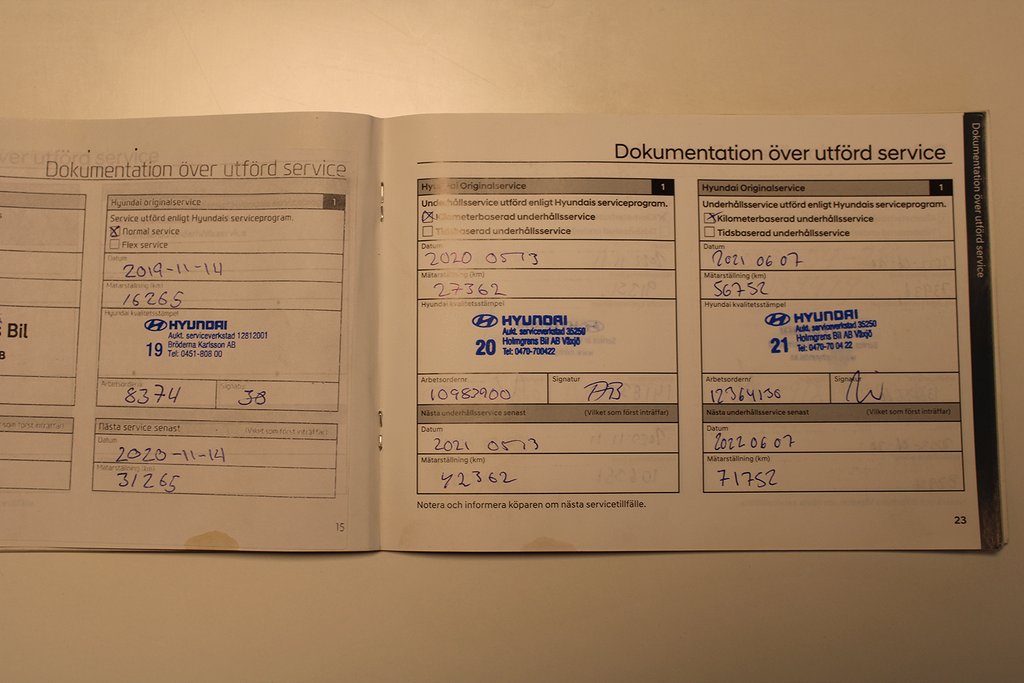 Dokumentation över utförd service
Bil
Hyundai originalservice 1
Service utförd enligt Hyundais serviceprogram.
Normal service
Flex service
Datum
2019-11-14
Mätarställning (km)
16265
Hyundai kvalitetsstämpel
HYUNDAI
Aukt. serviceverkstad 12812001
19 Bröderna Karlsson AB
Tel: 0451-808 00
Arbetsordernr Signatur
8374 JB
Nästa service senast (Vilket som först inträffar)
Datum
2020-11-14
Mätarställning (km)
31265
15
Dokumentation över utförd service
Hyundai Originalservice 1
Underhållsservice utförd enligt Hyundais serviceprogram.
Kilometerbaserad underhållsservice
Tidsbaserad underhållsservice
Datum
2020 0513
Mätarställning (km)
27362
Hyundai kvalitetsstämpel
HYUNDAI
Aukt. serviceverkstad 35250
20 Holmgrens Bil AB Växjö
Tel: 0470-700422
Arbetsordernr Signatur
10983900
Nästa underhållsservice senast (Vilket som först inträffar)
Datum
2021 0513
Mätarställning (km)
42362
Notera och informera köparen om nästa servicetillfälle.
Hyundai Originalservice 1
Underhållsservice utförd enligt Hyundais serviceprogram.
Kilometerbaserad underhållsservice
Tidsbaserad underhållsservice
Datum
2021 06 07
Mätarställning (km)
56752
Hyundai kvalitetsstämpel
HYUNDAI
Aukt. serviceverkstad 35250
21 Holmgrens Bil AB Växjö
Tel: 0470-70 04 22
Arbetsordernr Signatur
12364130
Nästa underhållsservice senast (Vilket som först inträffar)
Datum
2022 06 07
Mätarställning (km)
71752
23
Dokumentation över utförd service